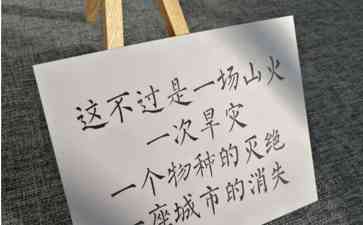 这不过是一场山火
一次旱灾
一个物种的灭绝
一座城市的消失